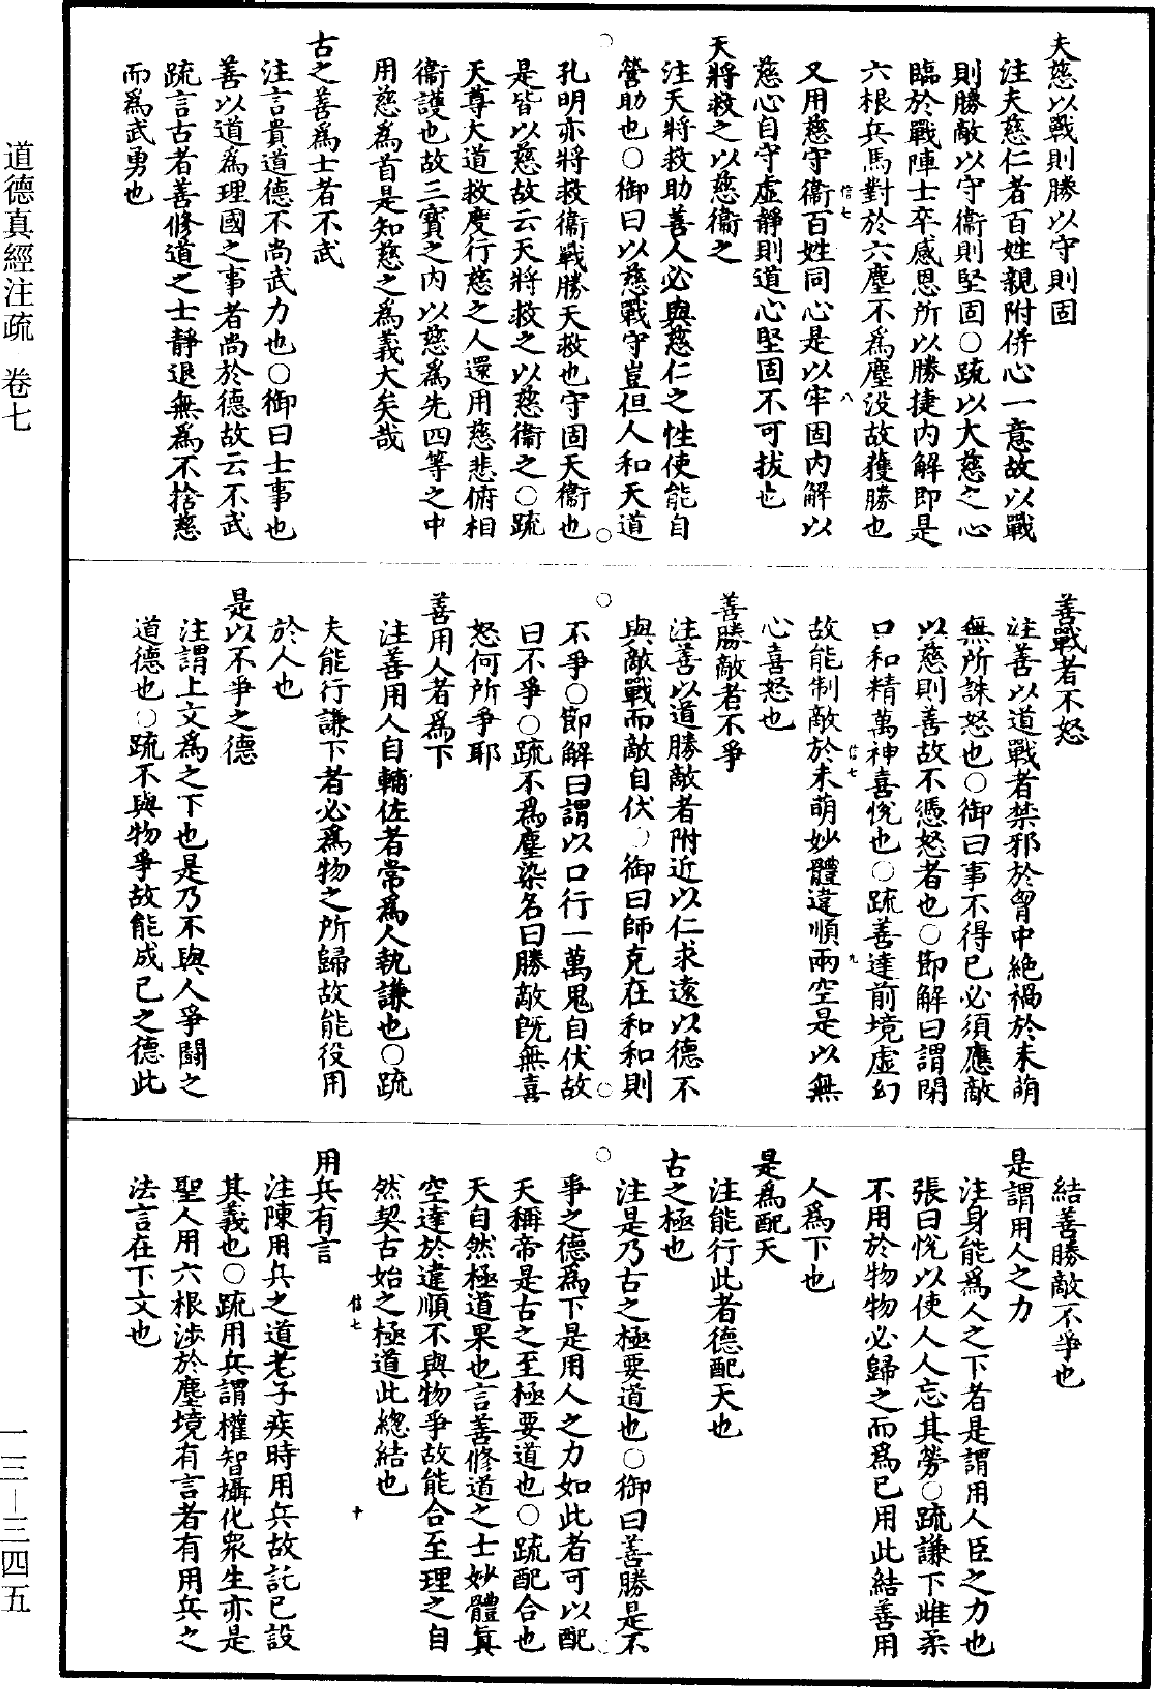 夫慈以戰則勝以守則固
注夫慈仁者百姓親附併心一意故以戰
則勝敵以守衞則堅固○疏以大慈之心
臨於戰陣士卒感恩所以勝捷内解即是
六根兵馬對於六塵不爲塵没故獲勝也
信七 八
又用慈守衞百姓同心是以牢固内解以
慈心自守虚靜則道心堅固不可拔也
天將救之以慈衞之
注天將救助善人必與慈仁之性使能自
營助也○御曰以慈戰守豈但人和天道
孔明亦將救衞戰勝天救也守固天衞也
是皆以慈故云天將救之以慈衞之○疏
天尊大道救度行慈之人還用慈悲俯相
衞護也故三寳之内以慈爲先四等之中
用慈爲首是知慈之爲義大矣哉
古之善爲士者不武
注言貴道德不尚武力也○御曰士事也
善以道爲理國之事者尚於德故云不武
疏言古者善修道之士靜退無爲不捨慈
而爲武勇也
善戰者不怒
注善以道戰者禁邪於胷中絶禍於未萌
無所誅怒也○御曰事不得已必須應敵
以慈則善故不憑怒者也○節解曰謂閉
口和精萬神喜悦也○疏善達前境虚幻
信七 九
故能制敵於未萌妙體違順兩空是以無
心喜怒也
善勝敵者不爭
注善以道勝敵者附近以仁求遠以德不
與敵戰而敵自伏○御曰師克在和和則
不爭○節解曰謂以口行一萬鬼自伏故
曰不爭○疏不爲塵染名曰勝敵旣無喜
怒何所爭耶
善用人者爲下
注善用人自輔佐者常爲人執謙也○疏
夫能行謙下者必爲物之所歸故能役用
於人也
是以不爭之德
注謂上文爲之下也是乃不與人爭鬪之
道德也○疏不與物爭故能成已之德此
結善勝敵不爭也
是謂用人之力
注身能爲人之下者是謂用人臣之力也
張曰悦以使人人忘其勞○疏謙下雌柔
不用於物物必歸之而爲已用此結善用
人爲下也
是爲配天
注能行此者德配天也
古之極也
注是乃古之極要道也○御曰善勝是不
爭之德爲下是用人之力如此者可以配
天稱帝是古之至極要道也○疏配合也
天自然極道果也言善修道之士妙體真
空達於違順不與物爭故能合至理之自
然契古始之極道此總結也
信七 十
用兵有言
注陳用兵之道老子疾時用兵故託已設
其義也○疏用兵謂權智攝化衆生亦是
聖人用六根涉於塵境有言者有用兵之
法言在下文也
道德真經注疏 卷七
一三—三四五